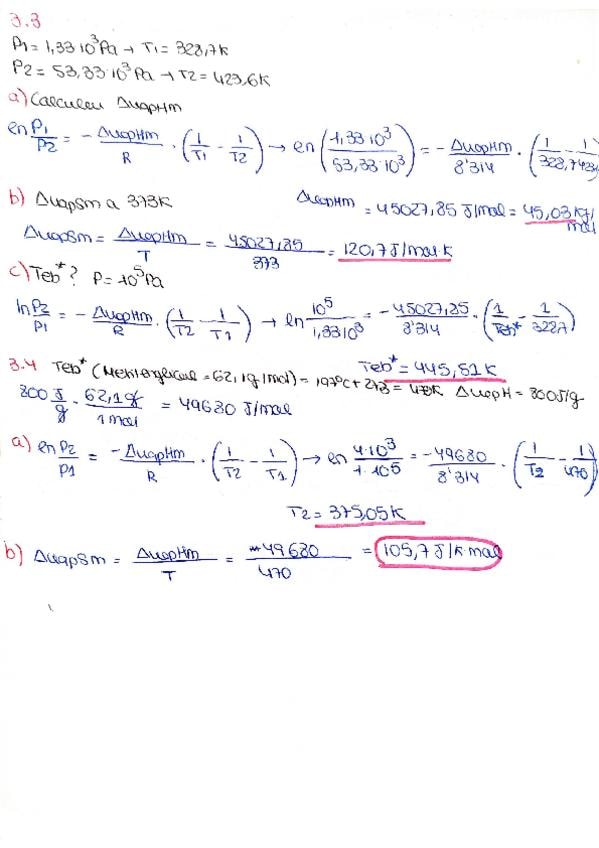 3.3
P1 = 1,33·10³Pa → T1 = 328,7K
P2 = 53,33·10³Pa → T2 = 423,6K
a) Calculeu ΔvapHm
ln P1/P2 = - ΔvapHm/R · (1/T1 - 1/T2) → ln (1,33·10³/53,33·10³) = - ΔvapHm/8'314 · (1/328,7 - 1/423
ΔvapHm = 45027,85 J/mol = 45,03 Kj/mol
b) ΔvapSm a 373K
ΔvapSm = ΔvapHm/T = 45027,85/373 = 120,7 J/mol·K
c) Teb*? P = 10⁵Pa
ln P2/P1 = - ΔvapHm/R · (1/T2 - 1/T1) → ln 10⁵/1,33·10³ = -45027,85/8'314 · (1/Teb* - 1/328,7)
Teb* = 445,51K
3.4 Teb* ( = 62,1g/mol) = 197ºC + 273 = 470K ΔvapH = 800J/g
800 J/g · 62,1g/1mol = 49680 J/mol
a) ln P2/P1 = -ΔvapHm/R · (1/T2 - 1/T1) → ln 4·10³/1·10⁵ = -49680/8'314 · (1/T2 - 1/470)
T2 = 375,05K
b) ΔvapSm = ΔvapHm/T = 49680/470 = 105,7 J/K·mol